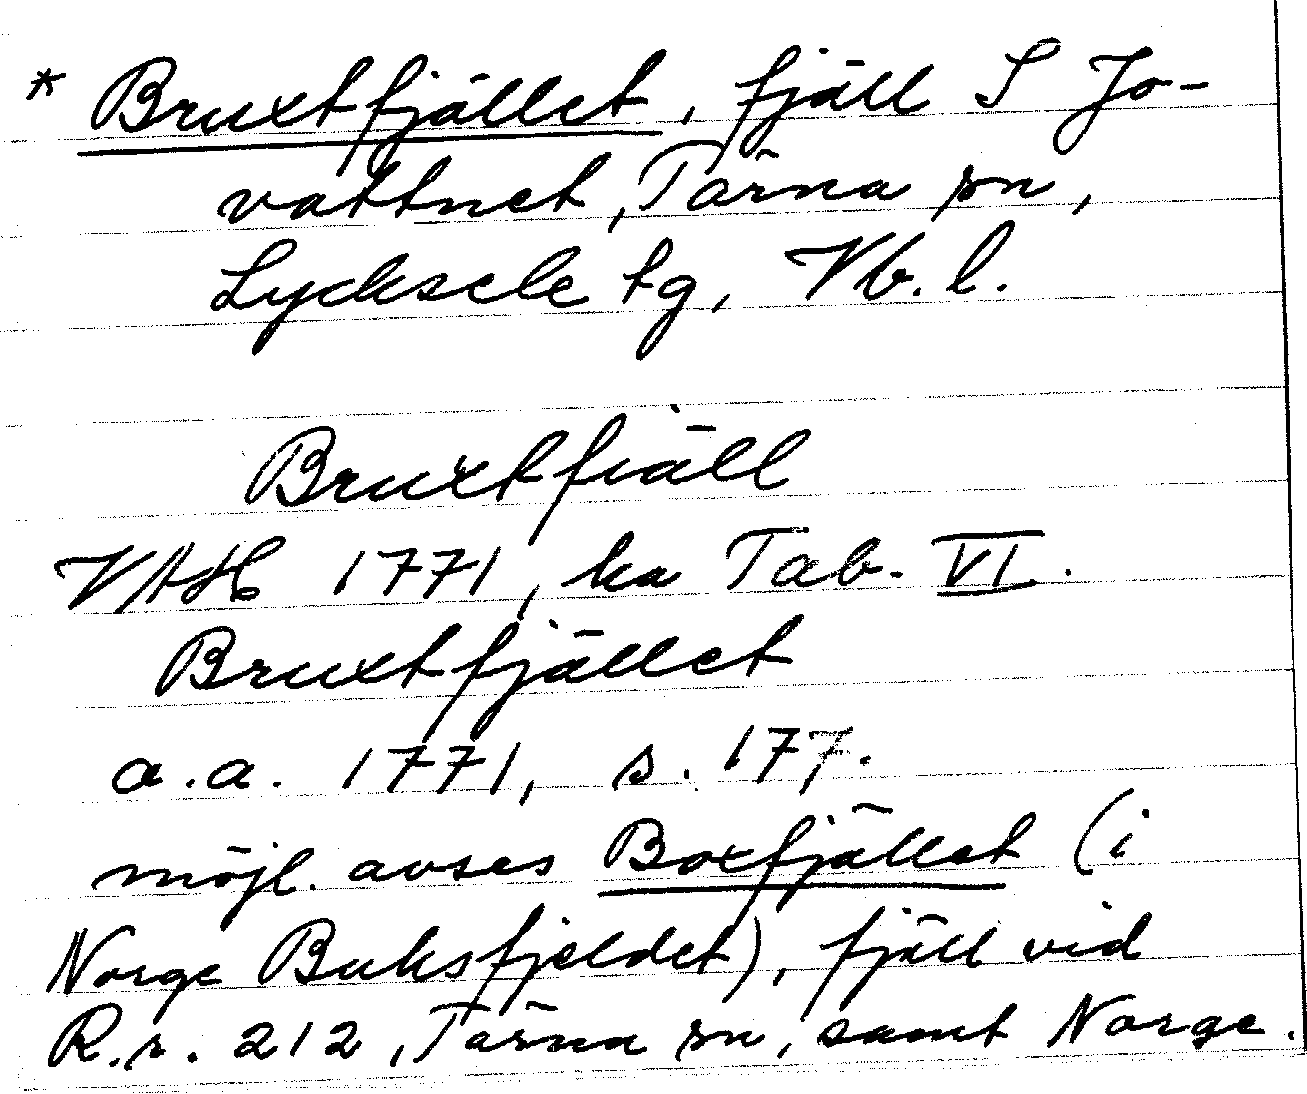 * Bruxtfjället, fjäll S Jo-
vattnet, Tärna sn,
Lycksele tg, Vb. l.
Bruxtfiäll
VAH 1771, ka Tab. VI.
Bruxtfjället
a.a. 1771, s. 177.
möjl. avses Boxfjället (i
Norge Buksfjeldet), fjäll vid
R.r. 212, Tärna sn, samt Norge.